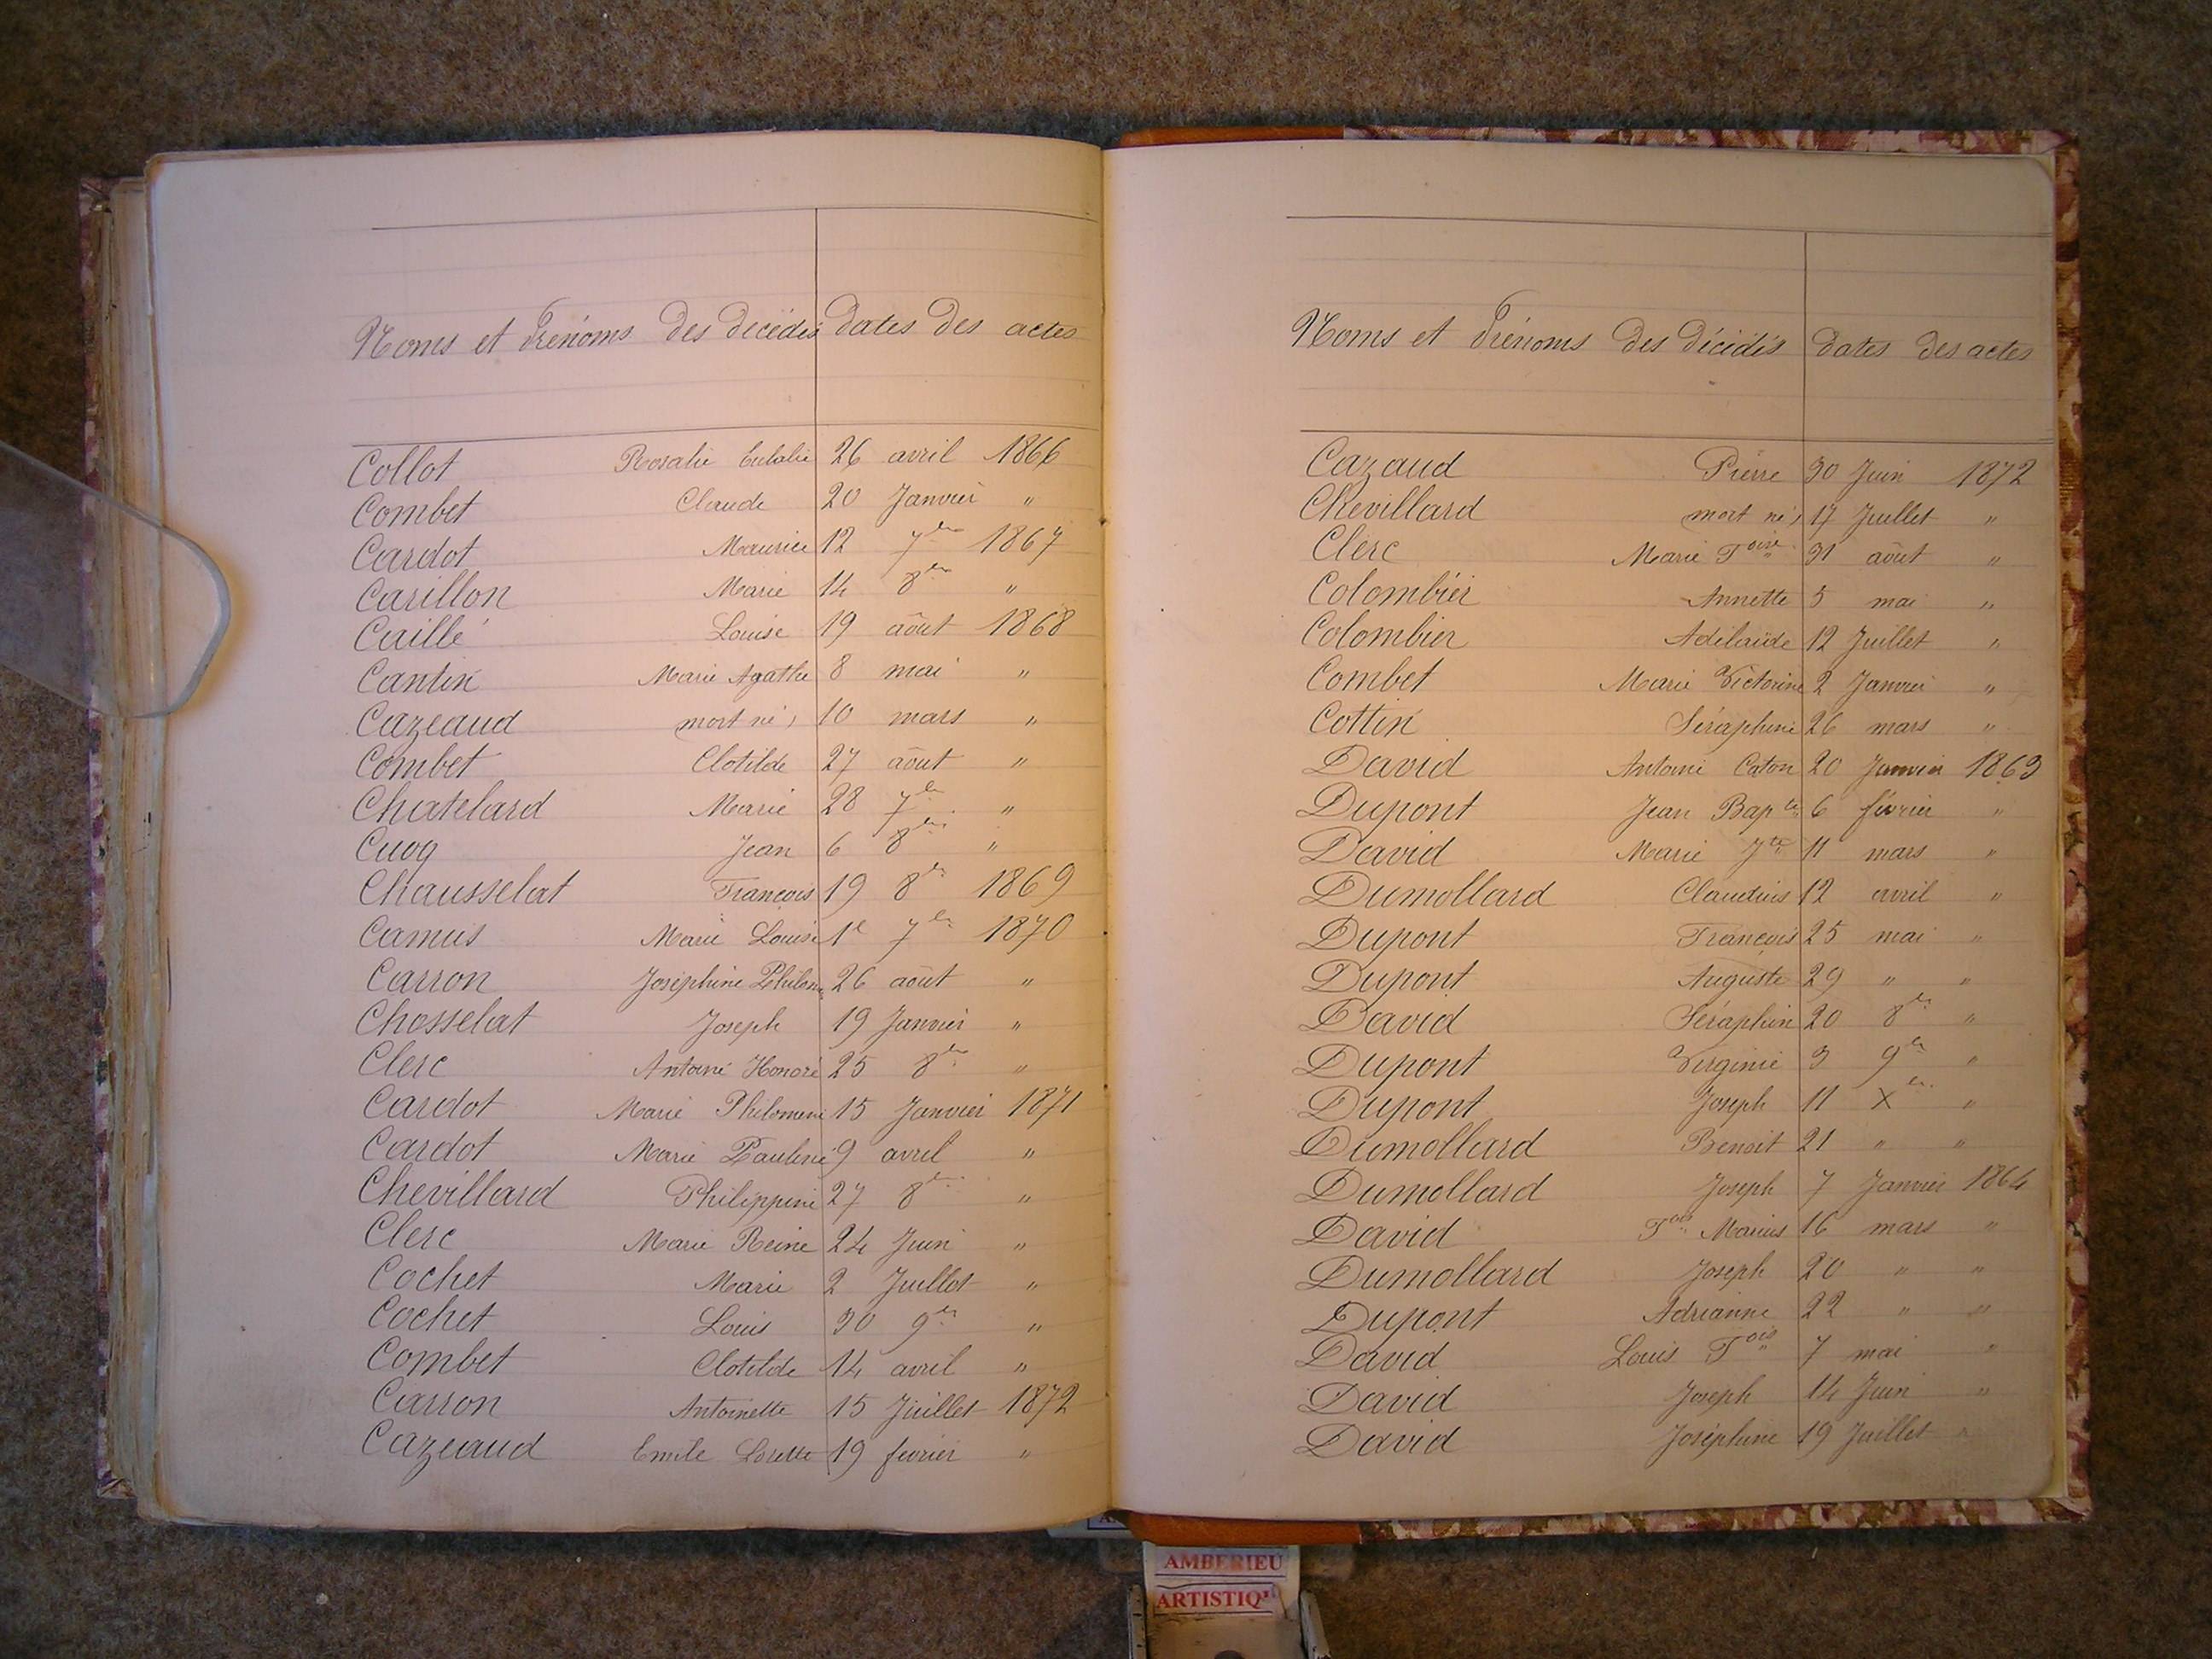 Noms et Prénoms des décédés dates des actes
Collot Rosalie Eulalie 26 avril 1866
Combet Claude 20 Janvier "
Cardot Maurice 12 7bre 1867
Carillon Marie 14 8bre "
Caillé Louise 19 août 1868
Cantin Marie Agathe 8 mai "
Cazeaud mort né, 10 mars "
Combet Clotilde 27 août "
Chatelard Marie 28 7bre "
Cuoq Jean 6 8bre "
Chausselat François 19 8bre 1869
Camus Marie Louise 1e 7bre 1870
Carron Joséphine Philom 26 août "
Chosselat Joseph 19 Janvier "
Clerc Antoine Honoré 25 8bre "
Cardot Marie Philomene 15 Janvier 1871
Cardot Marie Pauline 9 avril "
Chevillard Philippine 27 8bre "
Clerc Marie Reine 24 Juin "
Cochet Marie 2 Juillet "
Cochet Louis 30 9bre "
Combet Clotilde 14 avril "
Carron Antoinette 15 Juillet 1872
Cazeaud Emile Lorette 19 fevrier "
Noms et Prénoms des décédés dates des actes
Cazaud Pierre 30 Juin 1872
Chevillard mort né, 17 Juillet "
Clerc Marie Foise 31 août "
Colombier Annette 5 mai "
Colombier Adélaïde 12 Juillet "
Combet Marie Victorine 2 Janvier "
Cottin Séraphine 26 mars "
David Antoine Caton 20 Janvier 1863
Dupont Jean Bapte 6 février "
David Marie Jte 11 mars "
Dumollard Claudius 12 avril "
Dupont François 25 mai "
Dupont Auguste 29 " "
David Séraphin 20 8bre "
Dupont Virginie 3 9bre "
Dupont Joseph 11 Xbre "
Dumollard Benoit 21 " "
Dumollard Joseph 7 Janvier 1864
David Fois Marius 16 mars "
Dumollard Joseph 20 " "
Dupont Adrianne 22 " "
David Louis Fois 7 mai "
David Joseph 14 Juin "
David Joséphine 19 Juillet "
AMBERIEU
ARTISTIQ